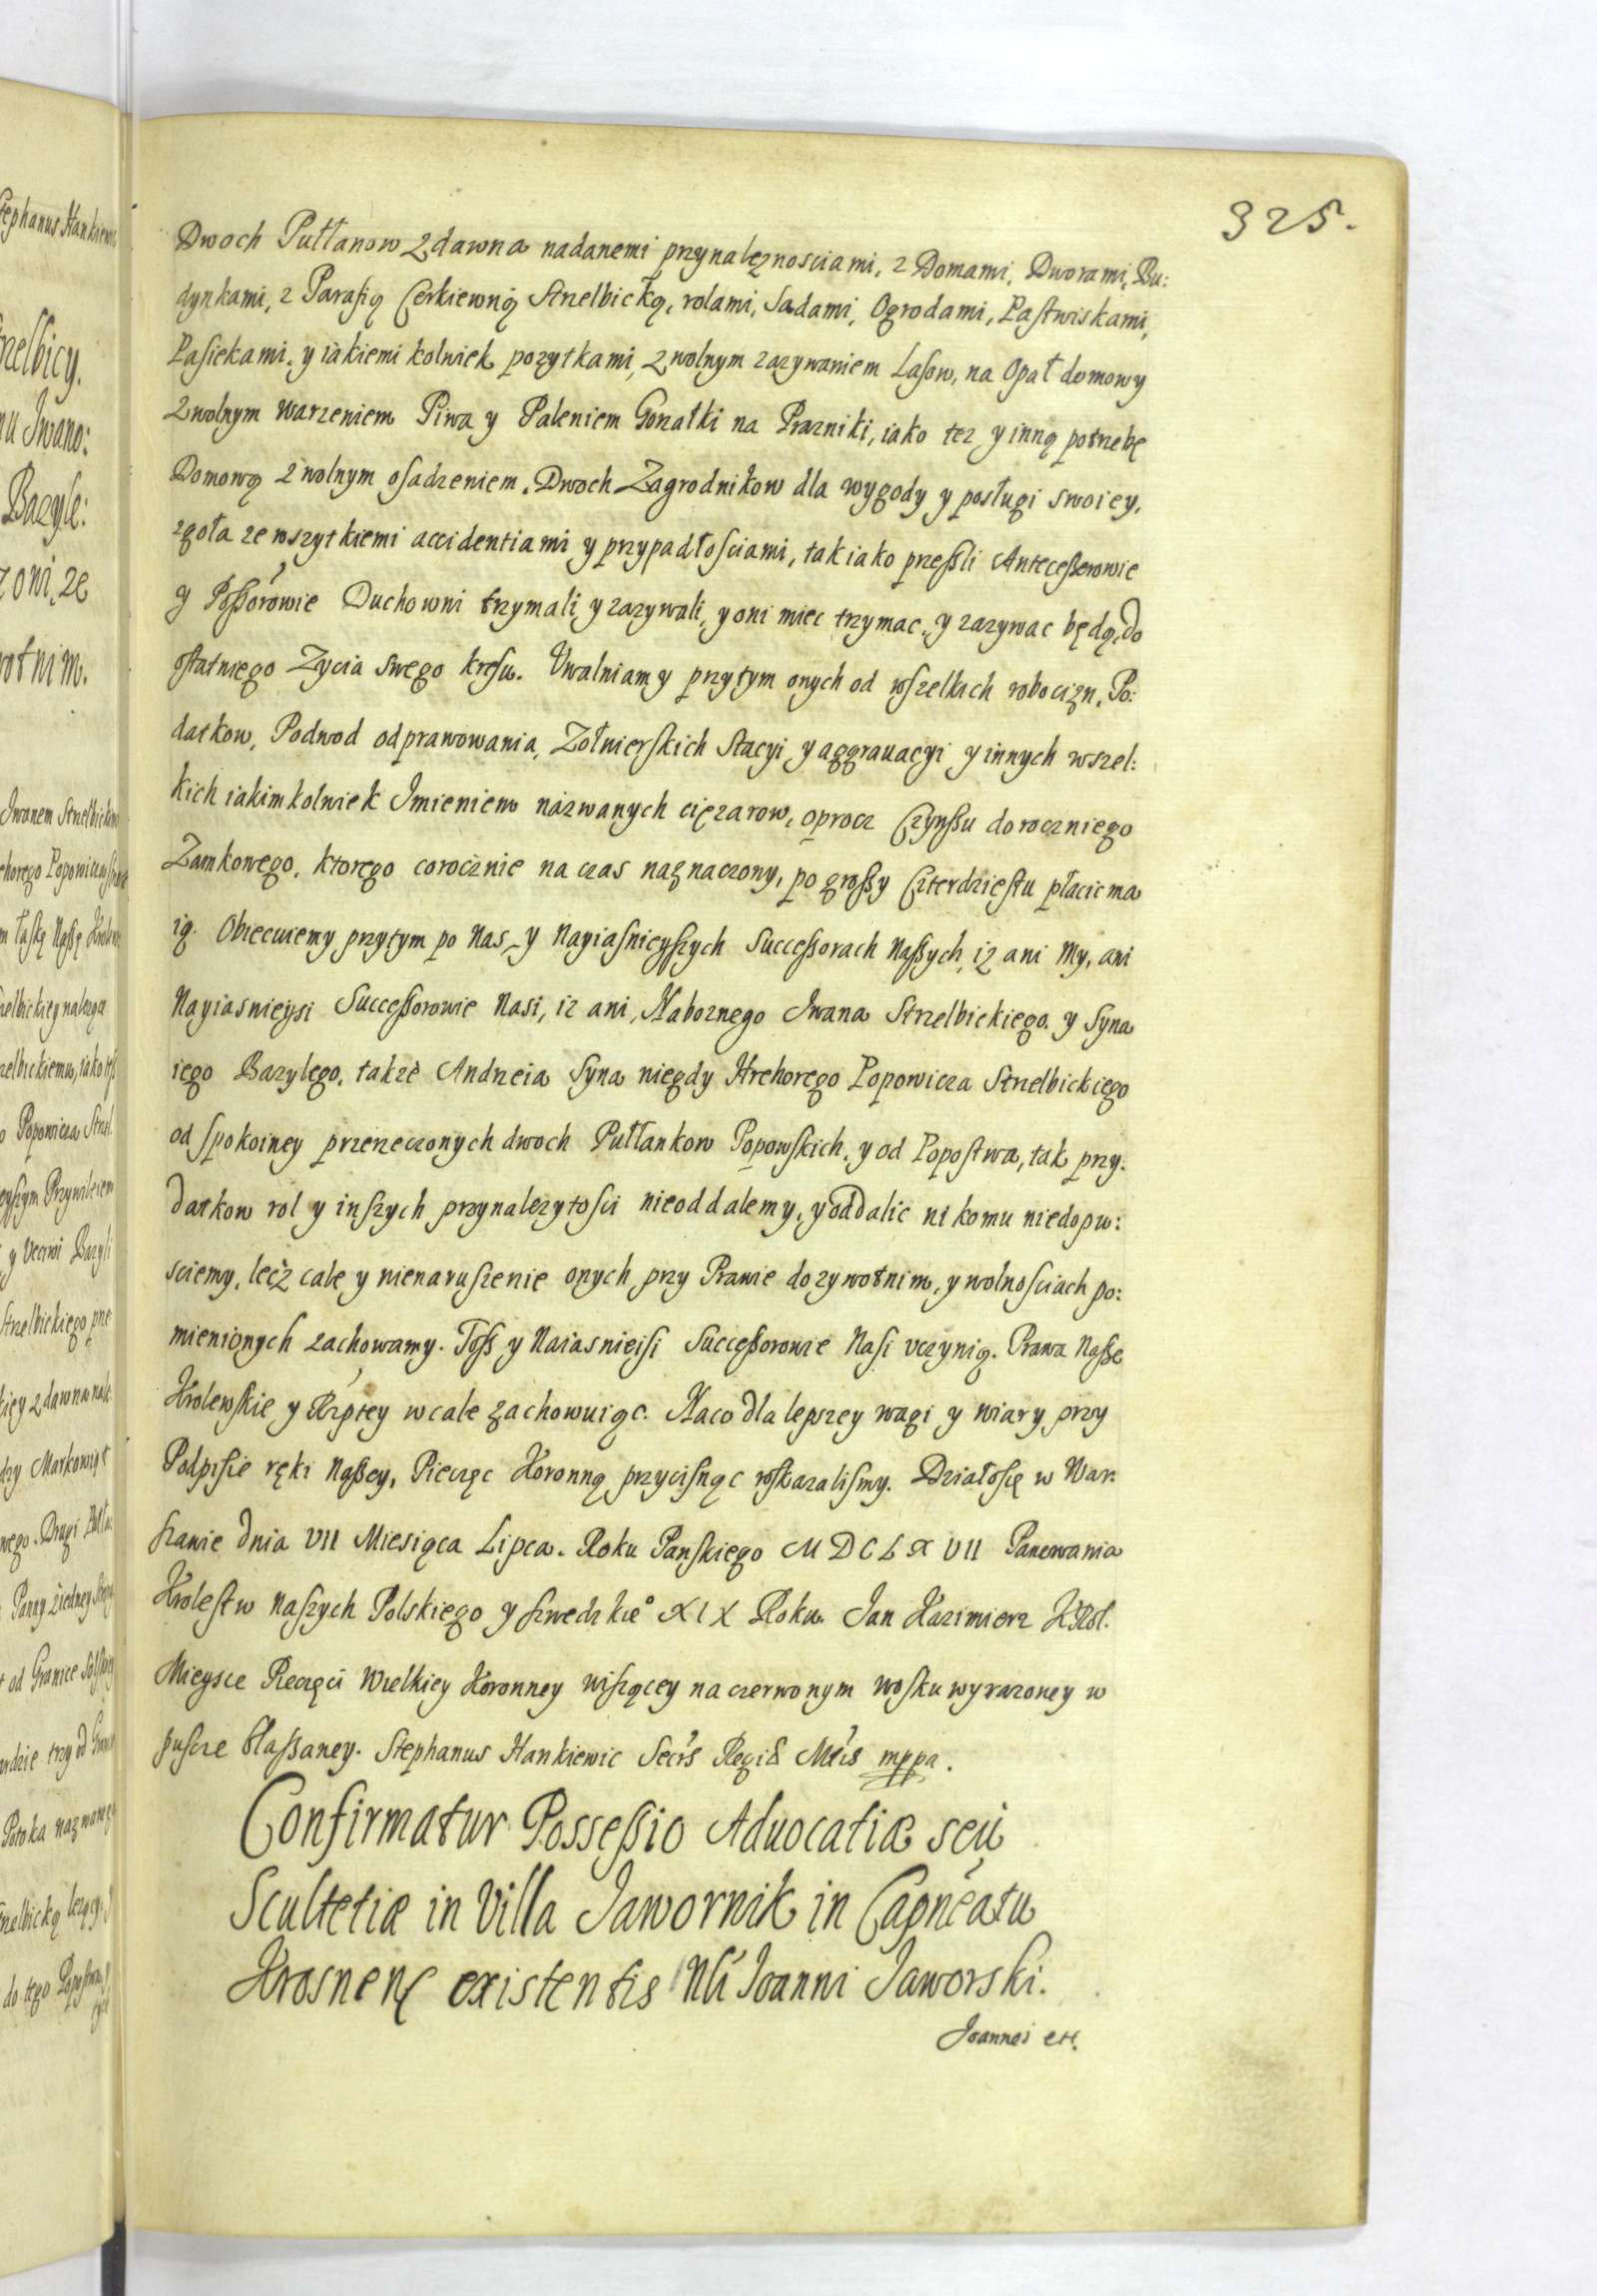 325.
Dwoch Pułłanow z dawna nadanemi przynaleznosciami, z Domami, Dworami, Bu:
dynkami, z Parafią Cerkiewną Strzelbicką, rolami, Sadami, Ogrodami, Pastwiskami,
Pasiekami, y iakiemi kolwiek pozytkami, z wolnym zazywaniem Lasow, na Opał domowy
z wolnym warzeniem Piwa y Paleniem Gorzałki na Prazniki, iako tez y inną potrzebę
Domową z wolnym osadzeniem. Dwoch Zagrodnikow dla wygody y posługi swoiey,
zgoła ze wszytkiemi accidentiami y przypadłosciami, tak iako przeszli Antecessorowie
y Possorowie Duchowni trzymali y zazywali, y oni miec trzymac, y zazywac będą, do
ostatniego Zycia swego kresu. Uwalniamy przytym onych od wszelkich robocizn, Po:
datkow, Podwod odprawowania, Zołnierskich Stacyi y aggrauacyi y innych wszel:
kich iakimkolwiek Imieniem nazwanych cięzarow, oprocz Czynszu doroczniego
Zamkowego, ktorego corocznie na czas naznaczony, po groszy Czterdziestu płacic ma
ią. Obiecuiemy przytym po Nas, y Nayiasnieyszych Successorach Naszych, iz ani My, ani
Nayiasnieysi Successorowie Nasi, iz ani, Naboznego Iwana Strzelbickiego y Syna
iego Bazylego, takze Andrzeia Syna niegdy Hrehorego Popowicza Strzelbickiego
od spokoiney przerzeczonych dwoch Pułłankow Popowskich, y od Popostwa, tak przy:
datkow rol y inszych przynalezytosci nieoddalemy, y oddalic ni komu niedopu:
sciemy, lecz cale y nienaruszenie onych przy Prawie dozywotnim, y wolnosciach po:
mienionych zachowamy. Toss y Naiasnieisi Successorowie Nasi uczynią. Prawa Nasze
Krolewskie y Rzptey wcale zachowuiąc. Naco dla lepszey wagi y wiary przy
Podpisie ręki Naszey, Pieczęc Koronną przycisnąc roskazalismy. Działosię w War:
szawie dnia VII Miesiąca Lipca. Roku Panskiego MDCLXVII Panowania
Krolestw Naszych Polskiego y Szwedzkie° XIX Roku. Jan Kazimierz Krol.
Mieysce Pieczęci Wielkiey Koronney wiszącey na czerwonym wosku wyrazoney w
puszce blaszaney. Stephanus Hankiewic Secrs Regiæ Mtis mppa.
Confirmatur Possessio Aduocatiæ seu
Scultetiæ in Villa Jawornik in Capneatu
Krosnen existentis Nli Joanni Jaworski.
Joannes etc.